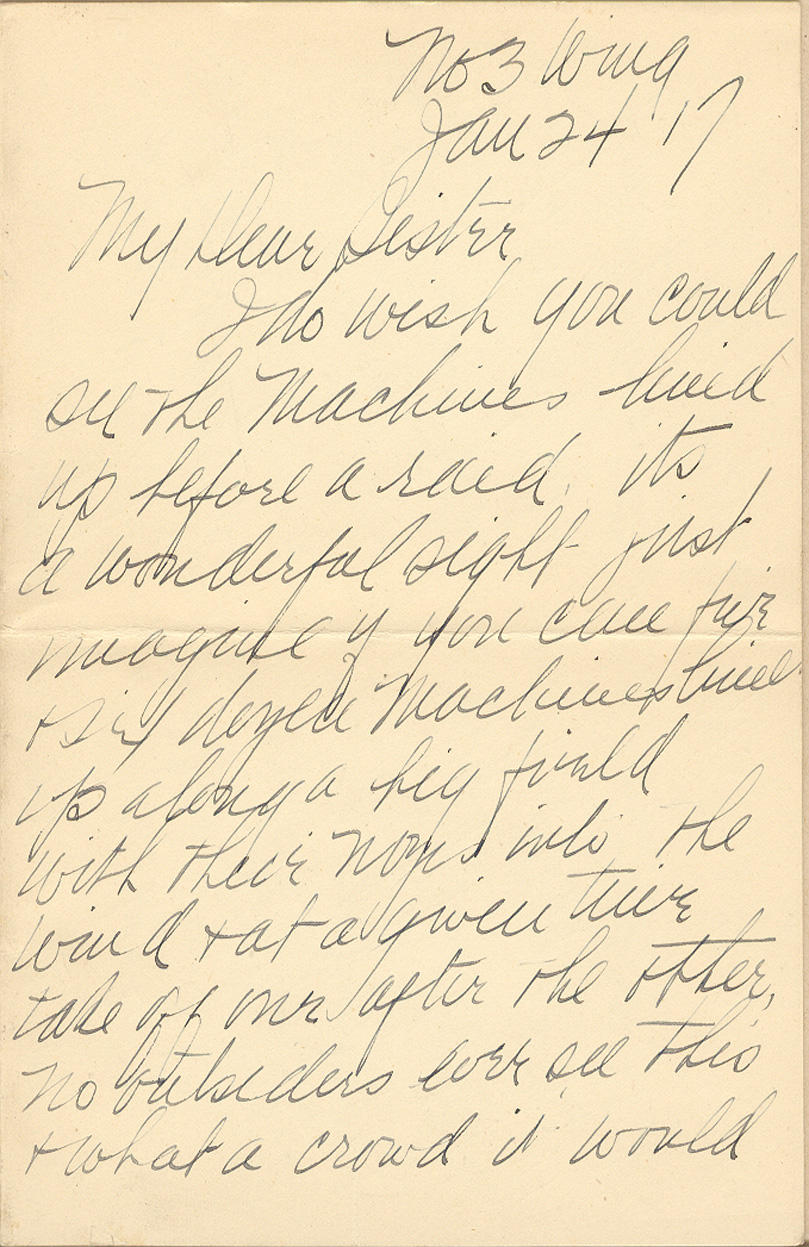 No 3 Wing
Jan 24 '17
My Dear Sister
I do wish you could
see the Machines lined
up before a raid. its
a wonderful sight just
imagine if you can five
+ six dozen Machines lined
up along a big field
with their noses into the
wind + at a given time
take off one after the other,
no outsiders ever see this
+ what a crowd it would